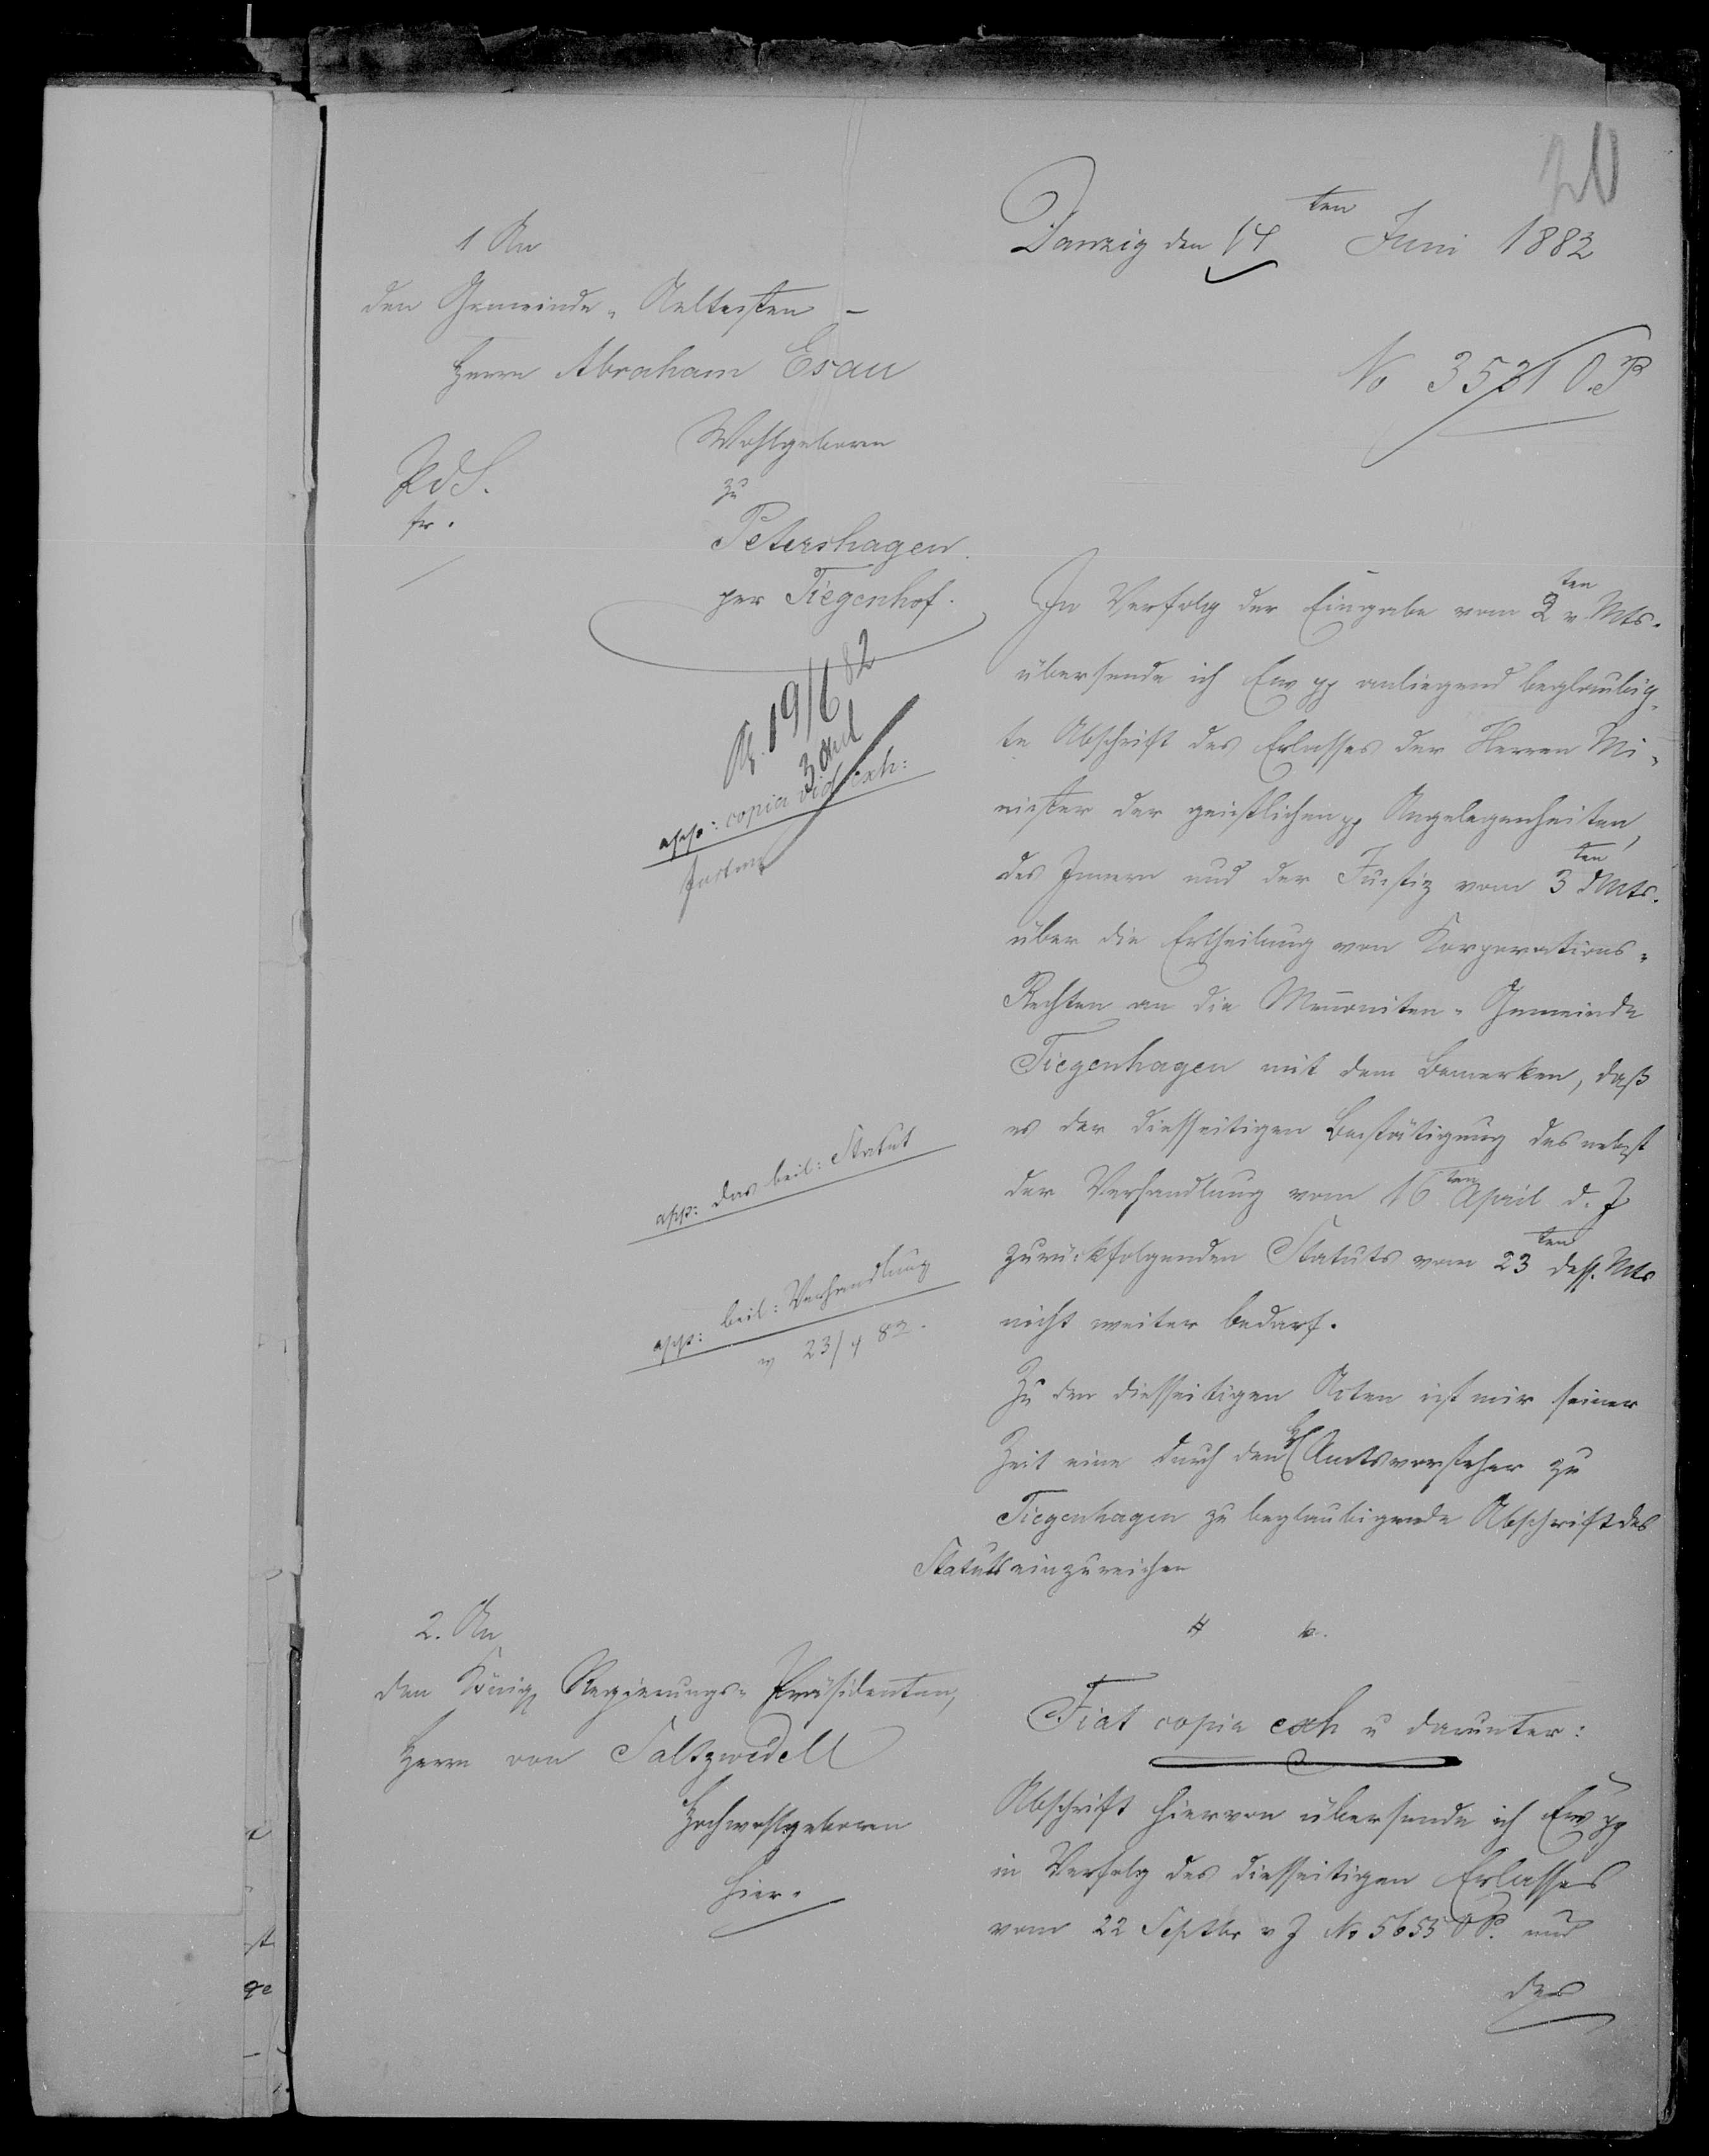 20
Danzig den 14ten Juni 1882
No 3531 O.P
1 An
den Gemeinde-Aeltesten
Herrn Abraham Esau
Wohlgeboren
zu
Petershagen.
per Tiegenhof.
PdS.
fr.
19/6 82
3 Anl
app: copia vid exh:
In Verfolg der Eingabe vom 2ten v. Mts.
übersende ich Ew pp anliegend beglaubig-
te Abschrift des Erlasses der Herren Mi-
nister der geistlichen pp Angelegenheiten,
des Innern und der Justiz vom 3ten d Mts.
über die Ertheilung von Korporations-
Rechten an die Mennoniten-Gemeinde
Tiegenhagen mit dem Bemerken, daß
es der diesseitigen Bestätigung des nebst
der Verhandlung vom 16ten April d. J
zurückfolgenden Statuts vom 23ten dess. Mts
nicht weiter bedarf.
app: das beil: Statut
app: beil: Verhandlung
v 23/4 82.
Zu den diesseitigen Akten ist mir seiner
Zeit eine durch den H Amtsvorsteher zu
Tiegenhagen zu beglaubigende Abschrift des
Statuts einzureichen
2. An
den Königl Regierungs-Präsidenten,
Herrn von Saltzwedell
Hochwohlgeboren
hier.
Fiat copia exh u darunter:
Abschrift hiervon übersende ich Ew pp
in Verfolg des diesseitigen Erlasses
vom 22 Septbr v J No 5655 O P. und
des